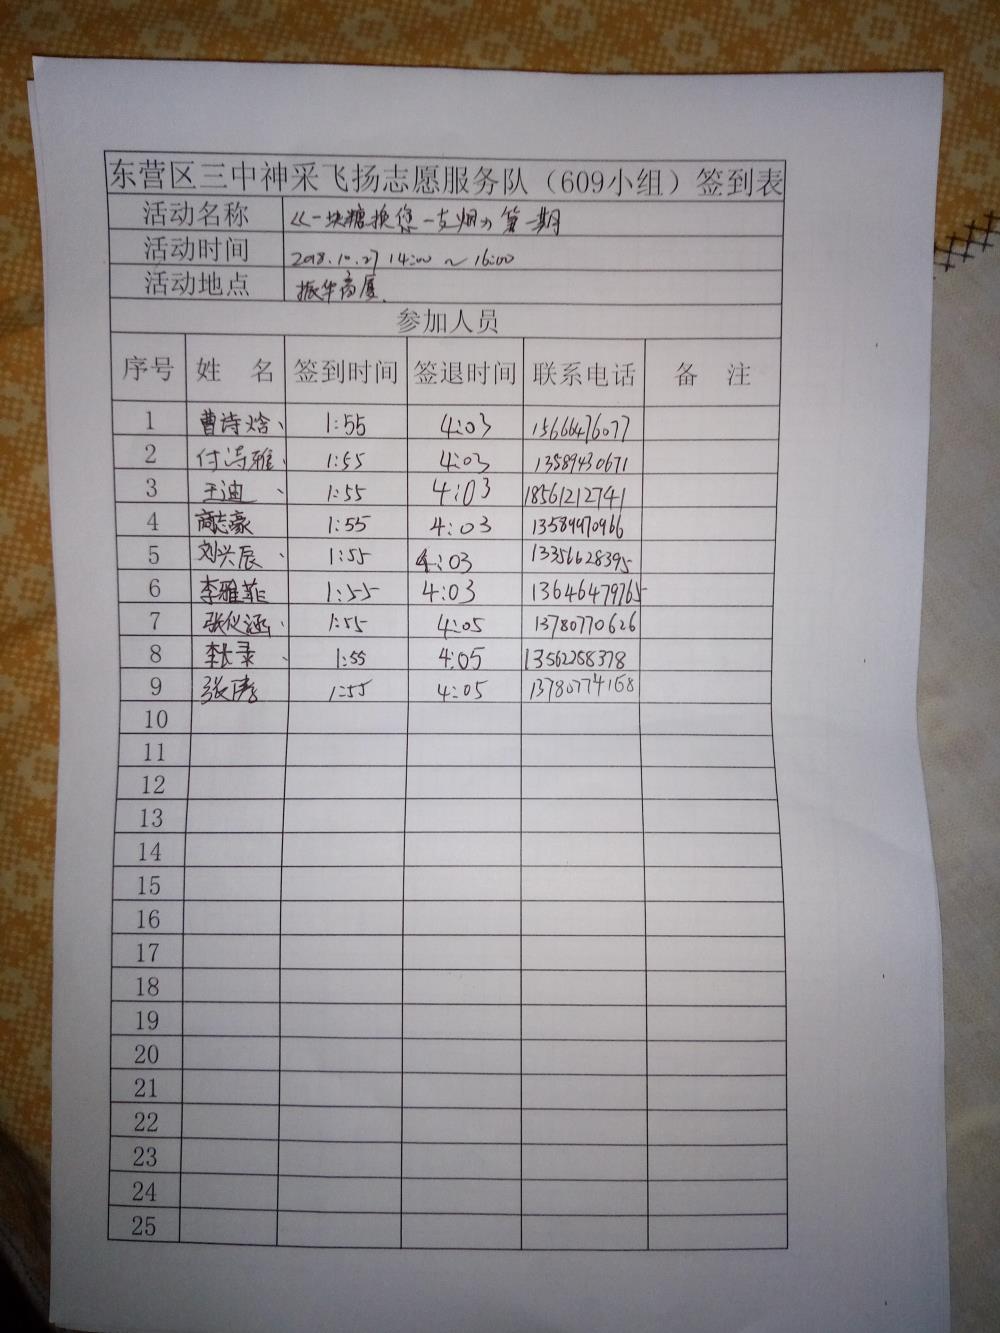 东营区三中神采飞扬志愿服务队（609小组）签到表
活动名称 《一块糖换您一支烟》第一期
活动时间 2018.10.27 14:00 ～ 16:00
活动地点 振华商厦.
参加人员
序号 姓 名 签到时间 签退时间 联系电话 备 注
1 曹诗焓、 1:55 4:03 15666476077
2 付涛雅、 1:55 4:03 13589430671
3 王迪、 1:55 4:03 18561212741
4 商志豪 1:55 4:03 13589970966
5 刘兴辰、 1:55 4:03 13356628395
6 李雅菲 1:55 4:03 13646479765
7 张仪涵、 1:55 4:05 13780770626
8 李 1:55 4:05 13562258378
9 张涛 1:55 4:05 13780774168
10
11
12
13
14
15
16
17
18
19
20
21
22
23
24
25